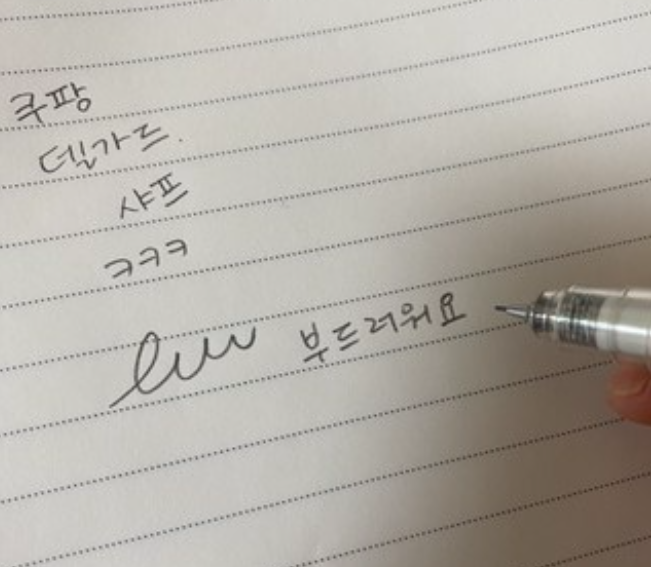 쿠팡
델가드.
샤프
ㅋㅋㅋ
luw 부드러워요